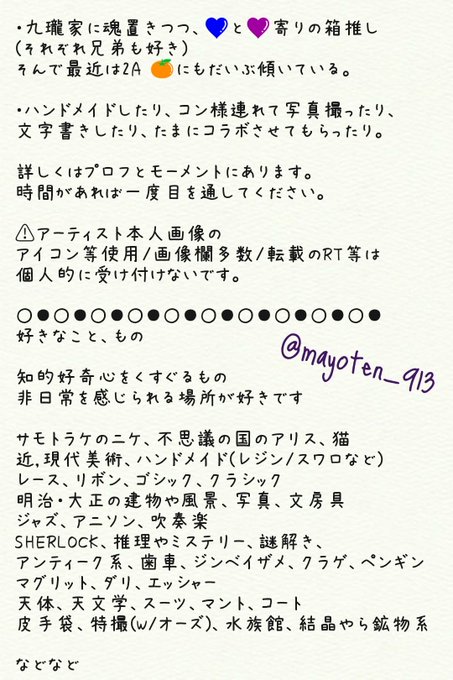 ・九瓏家に魂置きつつ、💙と💜寄りの箱推し
(それぞれ兄弟も好き)
そんで最近は2A 🍊にもだいぶ傾いている。
・ハンドメイドしたり、コン様連れて写真撮ったり、
文字書きしたり、たまにコラボさせてもらったり。
詳しくはプロフとモーメントにあります。
時間があれば一度目を通してください。
⚠アーティスト本人画像の
アイコン等使用/画像欄多数/転載のRT等は
個人的に受け付けないです。
○●○●○●○●○●○●○●○●○●○●
好きなこと、もの
@mayoten_913
知的好奇心をくすぐるもの
非日常を感じられる場所が好きです
サモトラケのニケ、不思議の国のアリス、猫
近,現代美術、ハンドメイド(レジン/スワロなど)
レース、リボン、ゴシック、クラシック
明治・大正の建物や風景、写真、文房具
ジャズ、アニソン、吹奏楽
SHERLOCK、推理やミステリー、謎解き、
アンティーク系、歯車、ジンベイザメ、クラゲ、ペンギン
マグリット、ダリ、エッシャー
天体、天文学、スーツ、マント、コート
皮手袋、特撮(W/オーズ)、水族館、結晶やら鉱物系
などなど